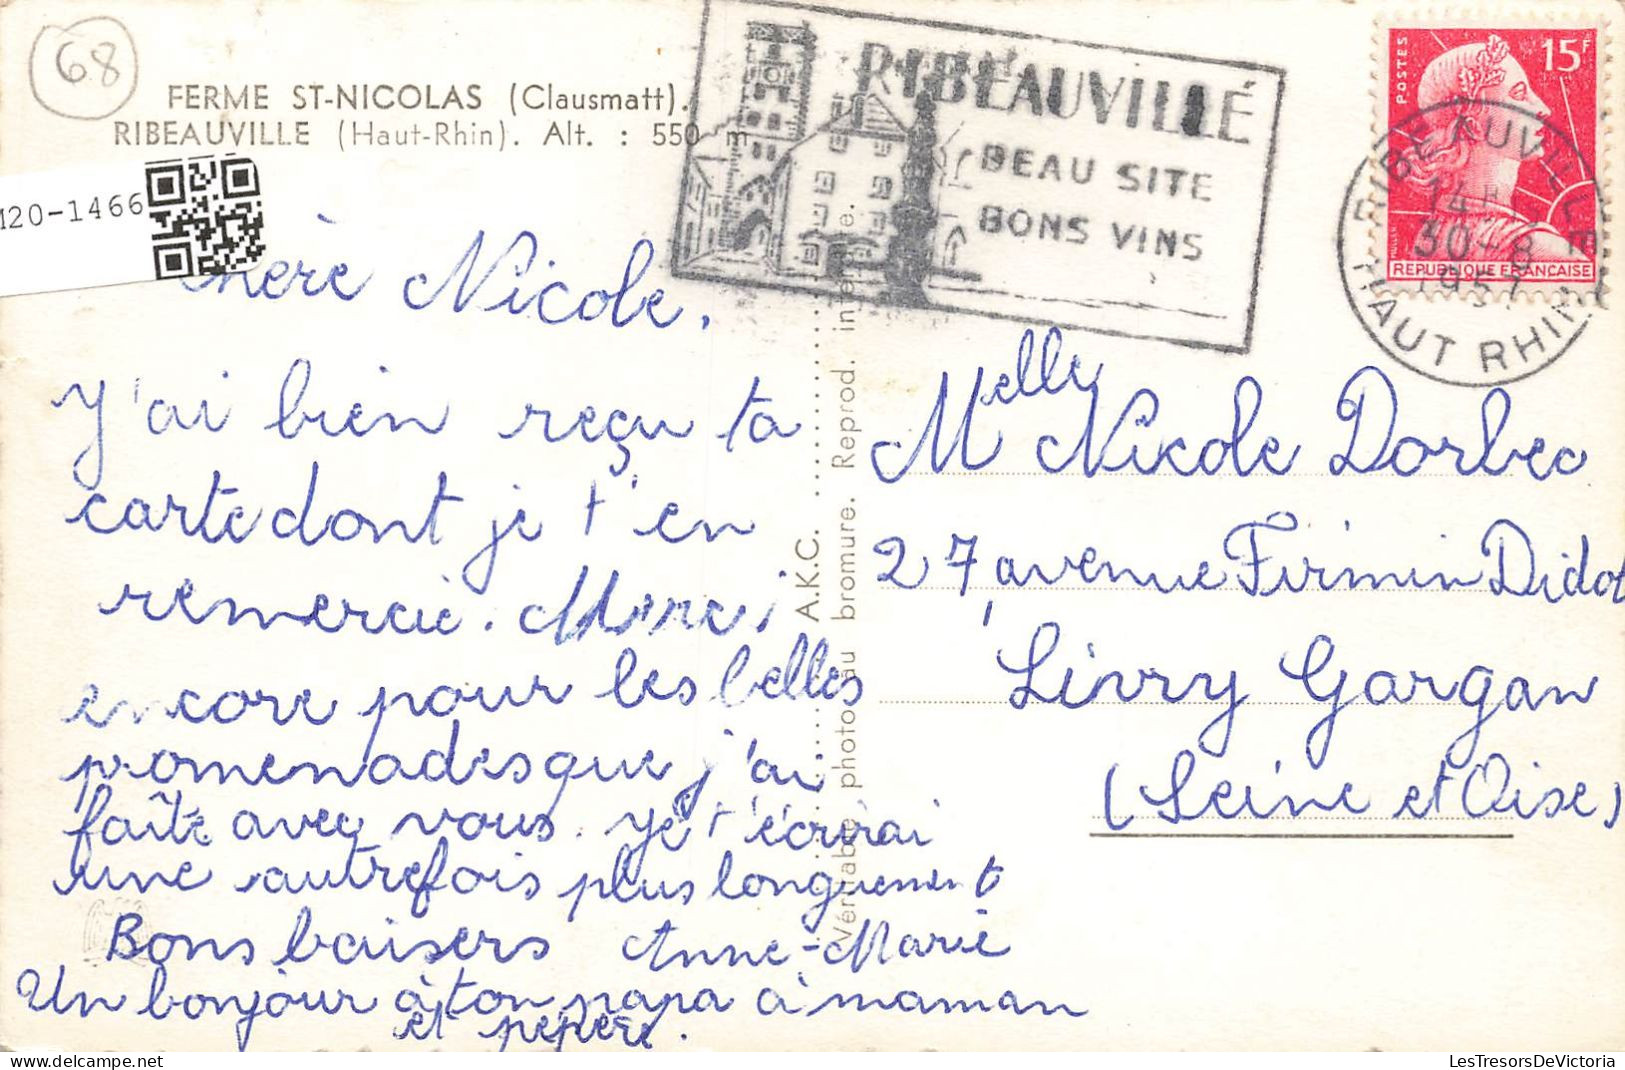 68
FERME ST-NICOLAS (Clausmatt).
RIBEAUVILLE (Haut-Rhin). Alt. : 550 m.
M20-1466
RIBEAUVILLÉ
BEAU SITE
BONS VINS
POSTES
15F
MULLER
REPUBLIQUE FRANÇAISE
RIBEAUVILLE
30-8
1957
HAUT RHIN
Chère Nicole.
J'ai bien reçu ta
carte dont je t'en
remercie. Merci
encore pour les belles
promenades que j'ai
faîte avec vous. Je t'écrirai
une autrefois plus longuement
Bons baisers Anne-Marie
Un bonjour à ton papa à maman
et pépère.
A.K.C.
Véritable photo au bromure. Reprod. interdite.
Melle Nicole Dorbec
27, avenue Firmin Didot
Livry Gargan
(Seine et Oise)
LesTresorsDeVictoria